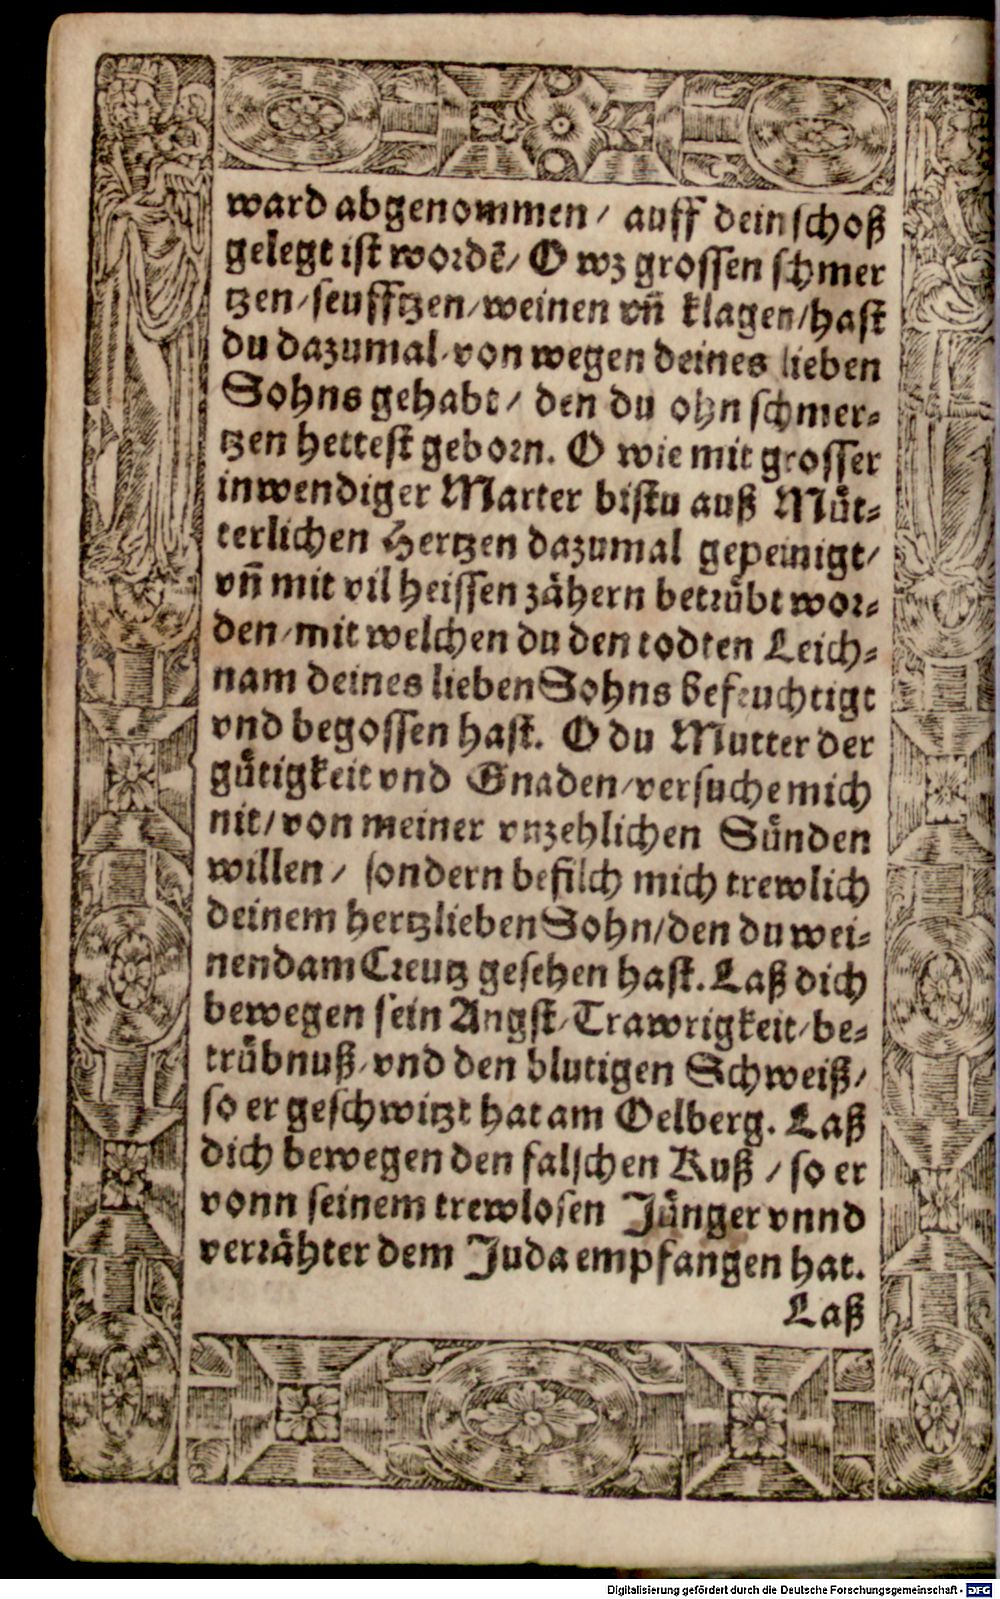 ward abgenommen / auff dein schoß
gelegt ist wordẽ / O wz grossen schmer
tzen / seufftzen / weinen vñ klagen / hast
du dazumal / von wegen deines lieben
Sohns gehabt / den du ohn schmer-
tzen hettest geborn. O wie mit grosser
inwendiger Marter bistu auß Müt-
terlichen Hertzen dazumal gepeinigt /
vñ mit vil heissen zähern betrübt wor-
den / mit welchen du den todten Leich-
nam deines lieben Sohns befeuchtigt
vnd begossen hast. O du Mutter der
gütigkeit vnd Gnaden / versuche mich
nit / von meiner vnzehlichen Sünden
willen / sondern befilch mich trewlich
deinem hertzlieben Sohn / den du wei-
nend am Creutz gesehen hast. Laß dich
bewegen sein Angst / Trawrigkeit / be-
trübnuß / vnd den blutigen Schweiß /
so er geschwitzt hat am Oelberg. Laß
dich bewegen den falschen Kuß / so er
vonn seinem trewlosen Jünger vnnd
verrähter dem Juda empfangen hat.
Laß
Digitalisierung gefördert durch die Deutsche Forschungsgemeinschaft - DFG